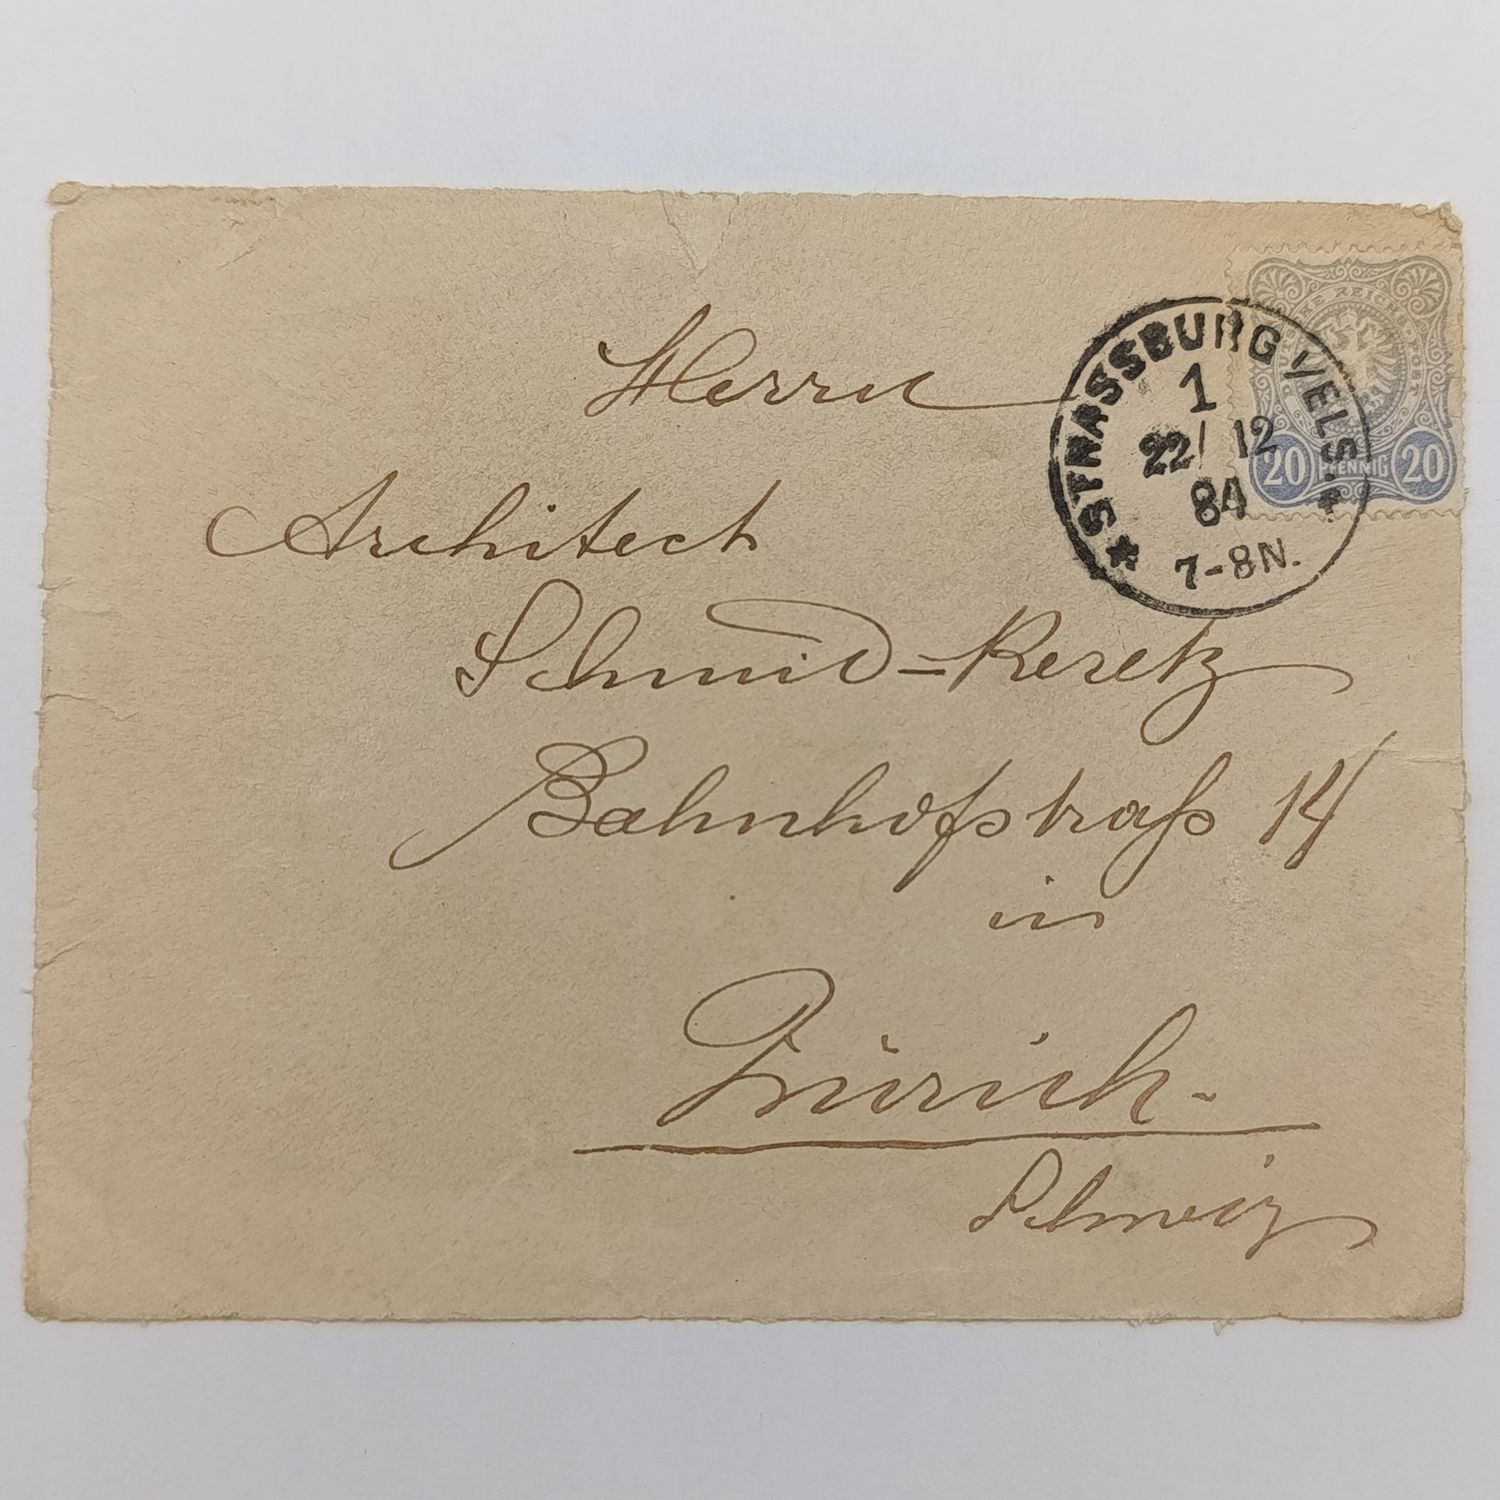 Herrn
Architect
Schmid=Keretz
Bahnhofstraß 14
in
Zürich.
Schweiz
STRASSBURG I/ELS.
1
22/12
84
7-8N.
DEUTSCHE REICHS-POST
20 PFENNIG 20